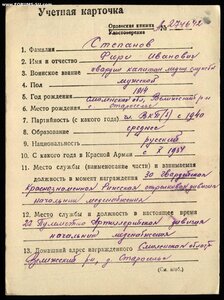 Учетная карточка
Орденская книжка
Удостоверение
№ 274648
1. Фамилия Степанов
2. Имя и отчество Иванович
3. Воинское звание гвардии капитан мед. службы
4. Пол мужской
5. Год рождения 1914
6. Место рождения Смоленская обл,
7. Партийность (с какого года) ВКП(б) с 1940
8. Образование среднее
9. Национальность русский
10. С какого года в Красной Армии с 1937
11. Место службы (наименование части) и занимаемая
должность в момент награждения 30 гвардейская
краснознаменная Рижская стрелковая дивизия
начальник медснабжения
12. Место службы и должность в настоящее время
22 Пулеметно Артиллерийская дивизия
начальник медснабжения
13. Домашний адрес награжденного Смоленская область
(См. на об.)